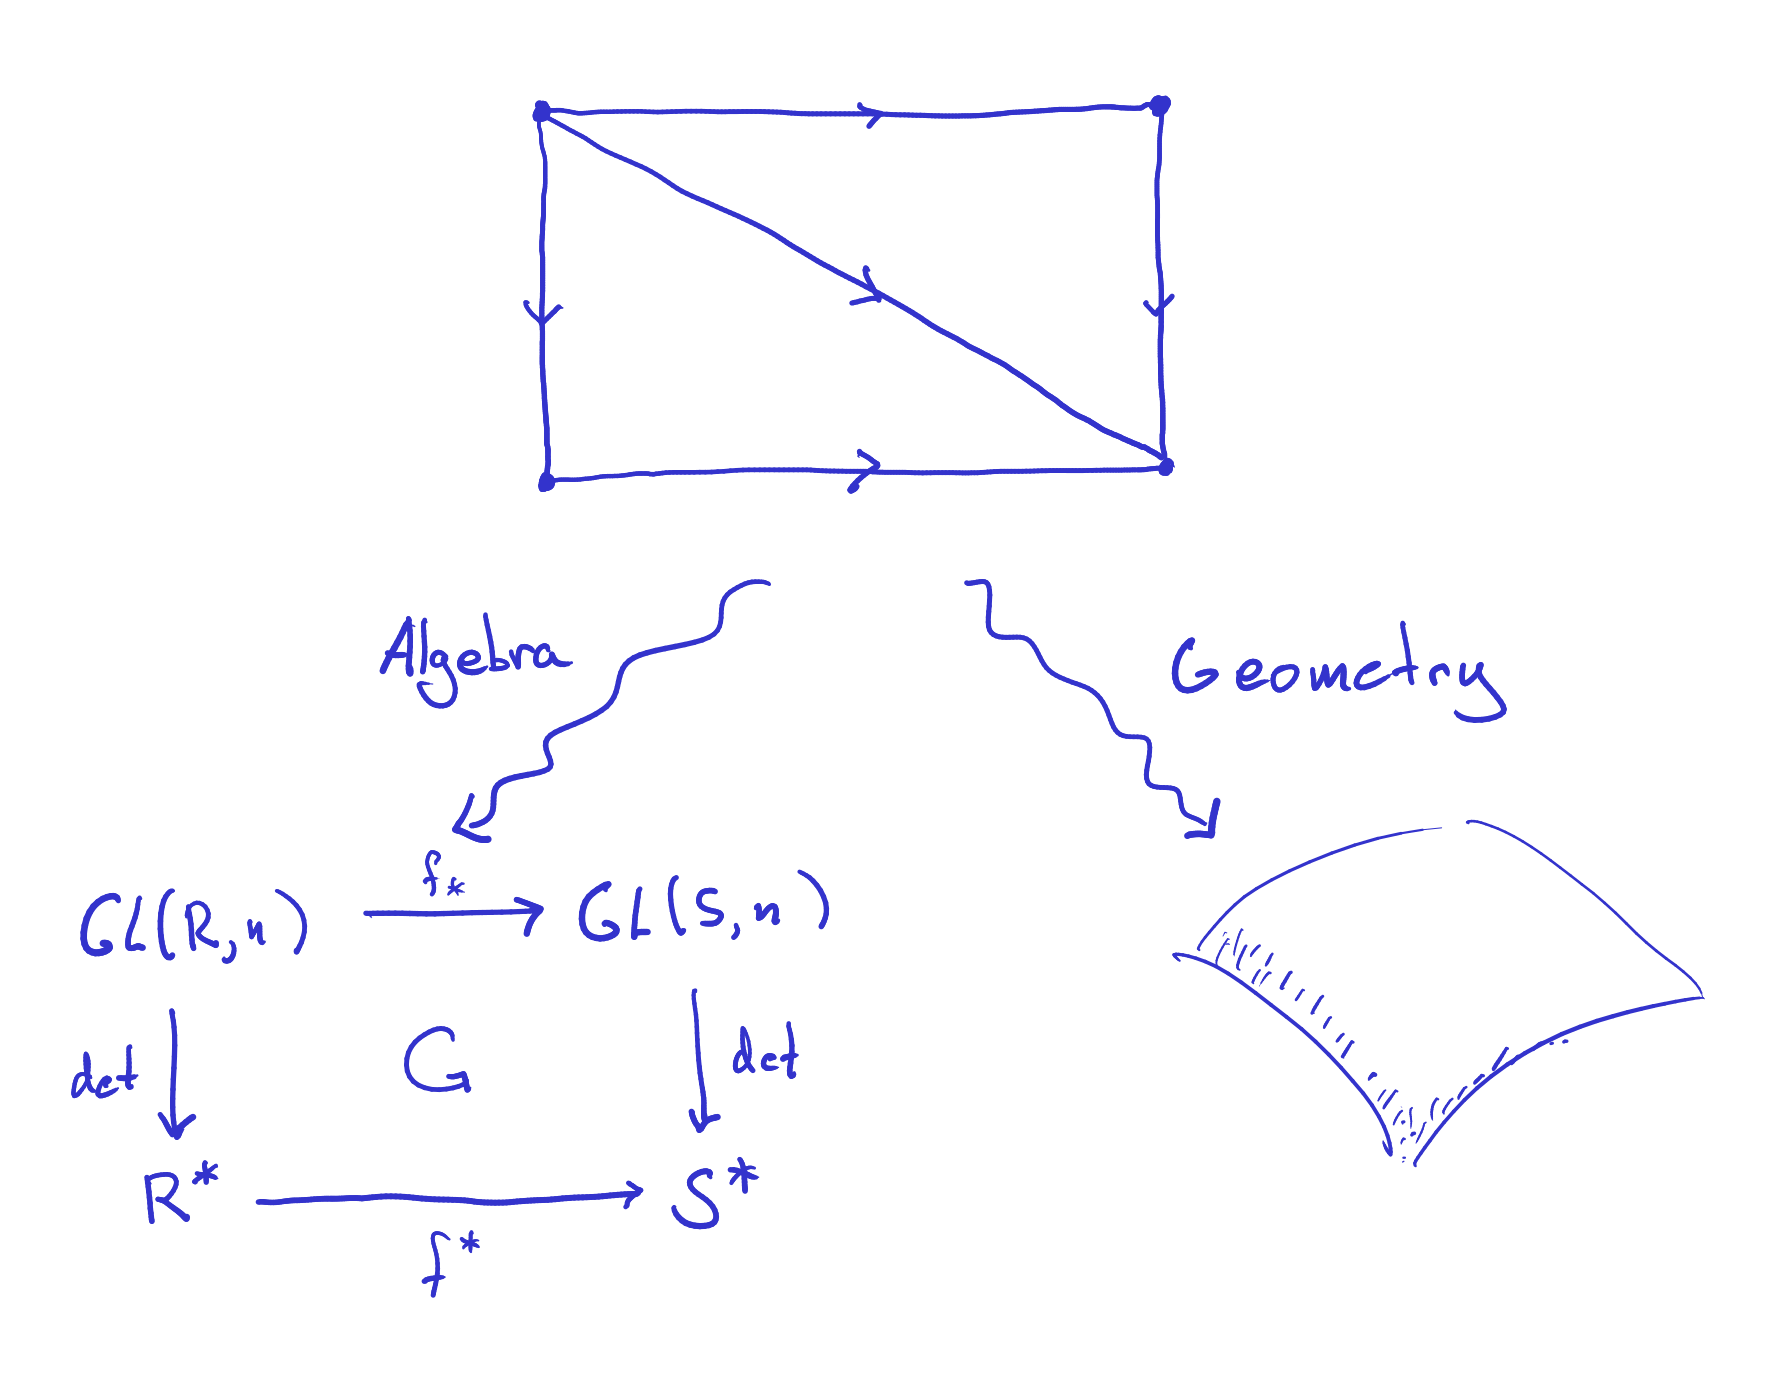 Algebra
Geometry
f*
GL(R,n)
GL(S,n)
det
G
det
R*
S*
f*